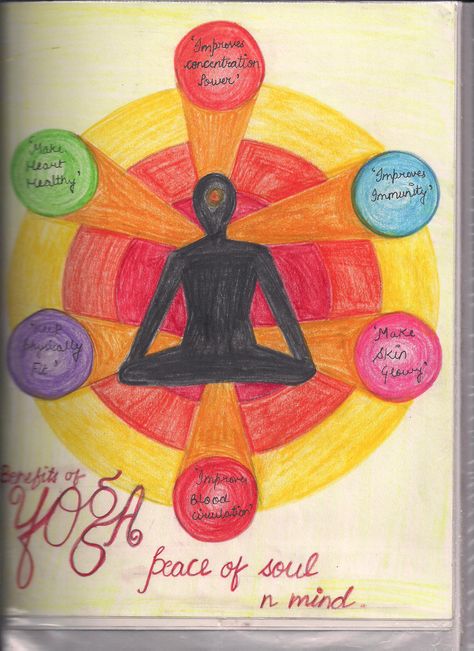 'Improves
concentration
Power'
'Make
Heart
Healthy'
'Improves
Immunity'
'Keep
physically
Fit'
'Make
Skin
Glowy'
'Improves
Blood
Circulation'
Benefits of
YOGA
peace of soul
n mind.